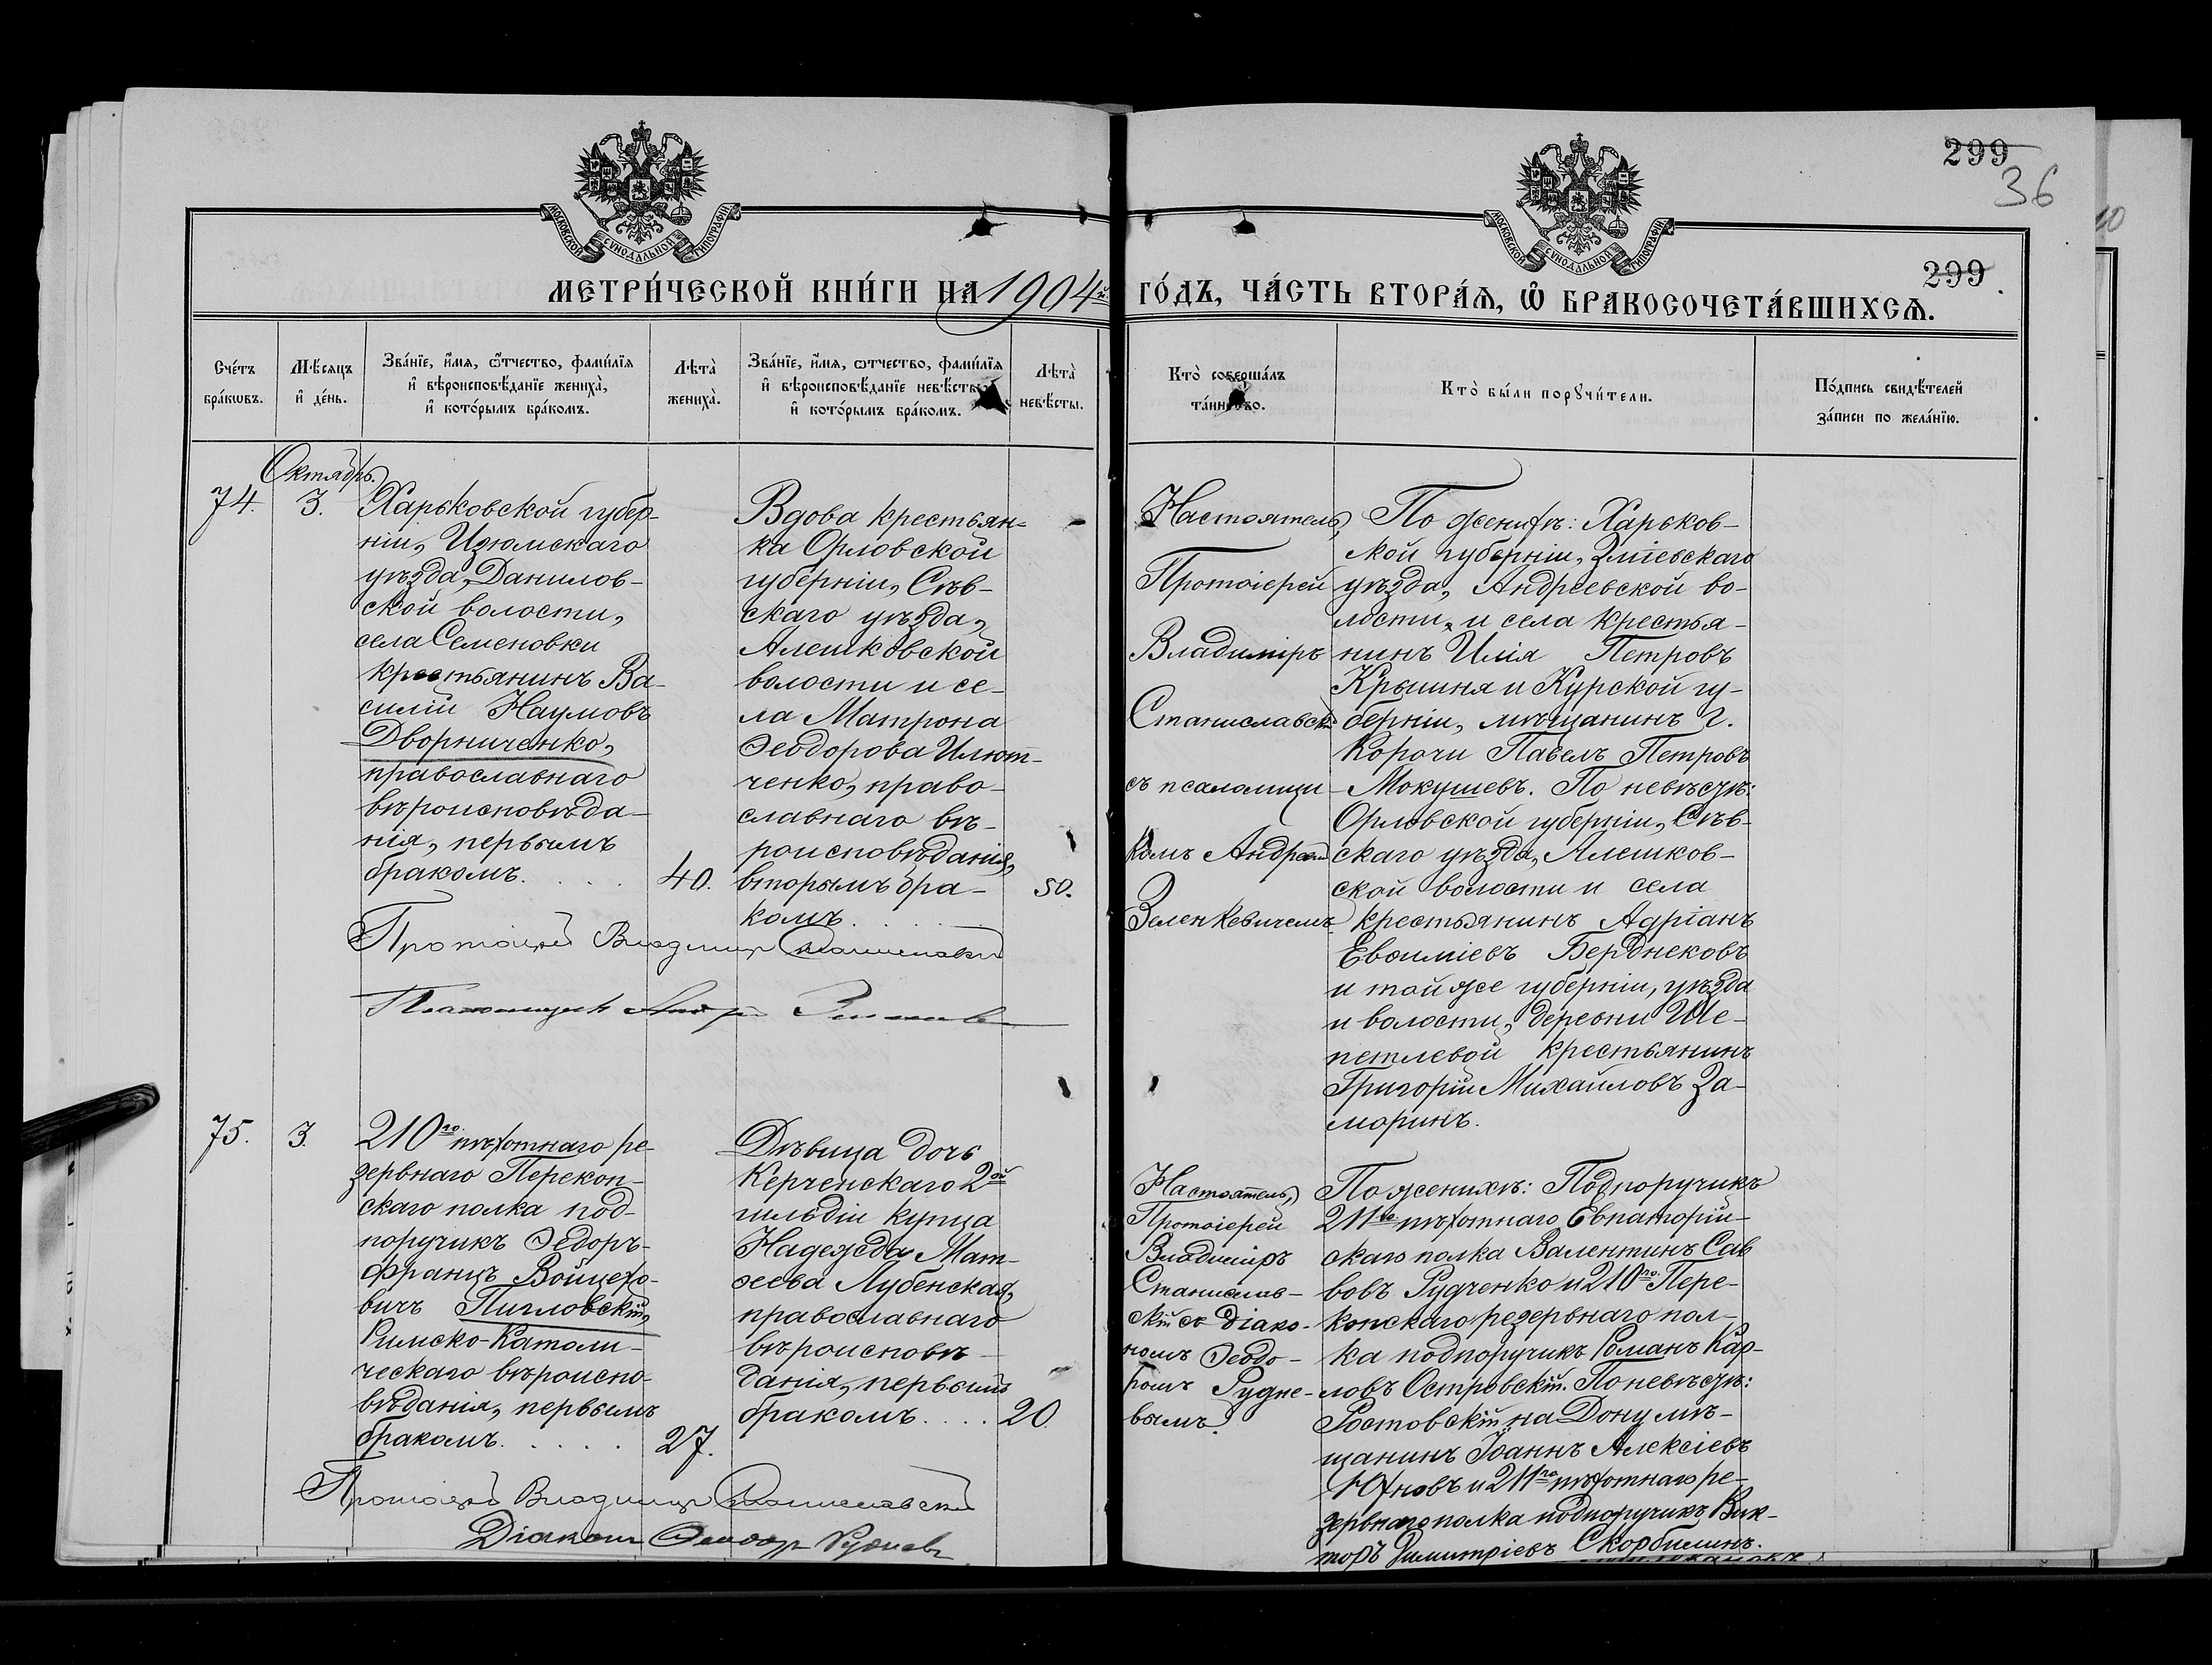 299
36
299
МОСКОВСКОЙ СѴНОДАЛЬНОЙ ТИПОГРАФІИ
МОСКОВСКОЙ СѴНОДАЛЬНОЙ ТИПОГРАФІИ
МЕТРИ́ЧЕСКОЙ КНИ́ГИ НА 1904й
ГО́ДЪ, ЧА́СТЬ ВТОРА́Ѧ, Ѽ БРАКОСОЧЕТА́ВШИХСѦ.
Сче́тъ
бра́кѡвъ.
Мѣ́сѧцъ
и҆ де́нь.
Зва́нїе, и҆́мѧ, ѻ҆́тчество, фами́лїѧ
и҆ вѣроисповѣ́данїе жениха̀,
и҆ кото́рымъ бра́комъ.
Лѣта̀
жениха̀.
Зва́нїе, и҆́мѧ, ѻ҆тчество, фами́лїѧ
и҆ вѣроисповѣ́данїе невѣ́сты
и҆ кото́рымъ бра́комъ.
Лѣта̀
невѣ́сты.
Кто̀ соверша́лъ
та́инство.
Кто̀ бы́ли порꙋчи́тели.
По́дпись свидѣ́телей
за́писи по жела́нїю.
Октябрь.
74.
3.
Харьковской губер-
ніи, Изюмскаго
уѣзда, Данилов-
ской волости,
села Семеновки
крестьянинъ Ва-
силій Наумовъ
Дворниченко,
православнаго
вѣроисповѣда-
нія, первымъ
бракомъ. . . . .
40.
Вдова крестьян-
ка Орловской
губерніи, Сѣв-
скаго уѣзда,
Алешковской
волости и се-
ла Матрона
Ѳеодорова Илют-
ченко, право-
славнаго вѣ-
роисповѣданія,
вторымъ бра-
комъ. . . .
50.
Настоятель,
Протоіерей
Владиміръ
Станиславскій
съ псаломщи-
комъ Андреемъ
Зеленкевичемъ
По женихѣ: Харьков-
ской губерніи, Зміевскаго
уѣзда, Андреевской во-
лости, и села крестья-
нинъ Илія Петровъ
Крышня и Курской гу-
берніи, мѣщанинъ г.
Корочи Павелъ Петровъ
Мокушевъ. По невѣстѣ:
Орловской губерніи, Сѣв-
скаго уѣзда, Алешков-
ской волости и села
крестьянинъ Адріанъ
Евѳиміевъ Берднековъ
и той же губерніи, уѣзда
и волости, деревни Ше-
петлевой крестьянинъ
Григорій Михайловъ За-
моринъ.
Протоіерей Владиміръ Станиславскій
Псаломщикъ Андрей
75.
3.
210го пѣхотнаго ре-
зервнаго Перекоп-
скаго полка под-
поручикъ Ѳедоръ-
Францъ Войцехо-
вичъ Пигловскій,
Римско-Католи-
ческаго вѣроиспо-
вѣданія, первымъ
бракомъ. . . . .
27.
Дѣвица дочь
Керченскаго 2ой
гильдіи купца
Надежда Мат-
ѳеева Лубенская,
православнаго
вѣроисповѣ-
данія, первымъ
бракомъ. . . .
20.
Настоятель,
Протоіерей
Владиміръ
Станислав-
скій съ діако-
номъ Ѳеодо-
ромъ Рудне-
вымъ.
По женихѣ: Подпоручикъ
211го пѣхотнаго Евпаторій-
скаго полка Валентинъ Сав
вовъ Рудченко и 210го Пере-
копскаго резервнаго пол-
ка подпоручикъ Романъ Кар-
ловъ Островскій. По невѣстѣ:
Ростовскій на Дону мѣ-
щанинъ Іоаннъ Алексіевъ
Юхновъ и 211го пѣхотнаго ре-
зервнаго полка подпоручикъ Вик-
торъ Димитріевъ Скорбилинъ.
Протоіерей Владиміръ Станиславскій
Діаконъ Ѳеодоръ Рудневъ